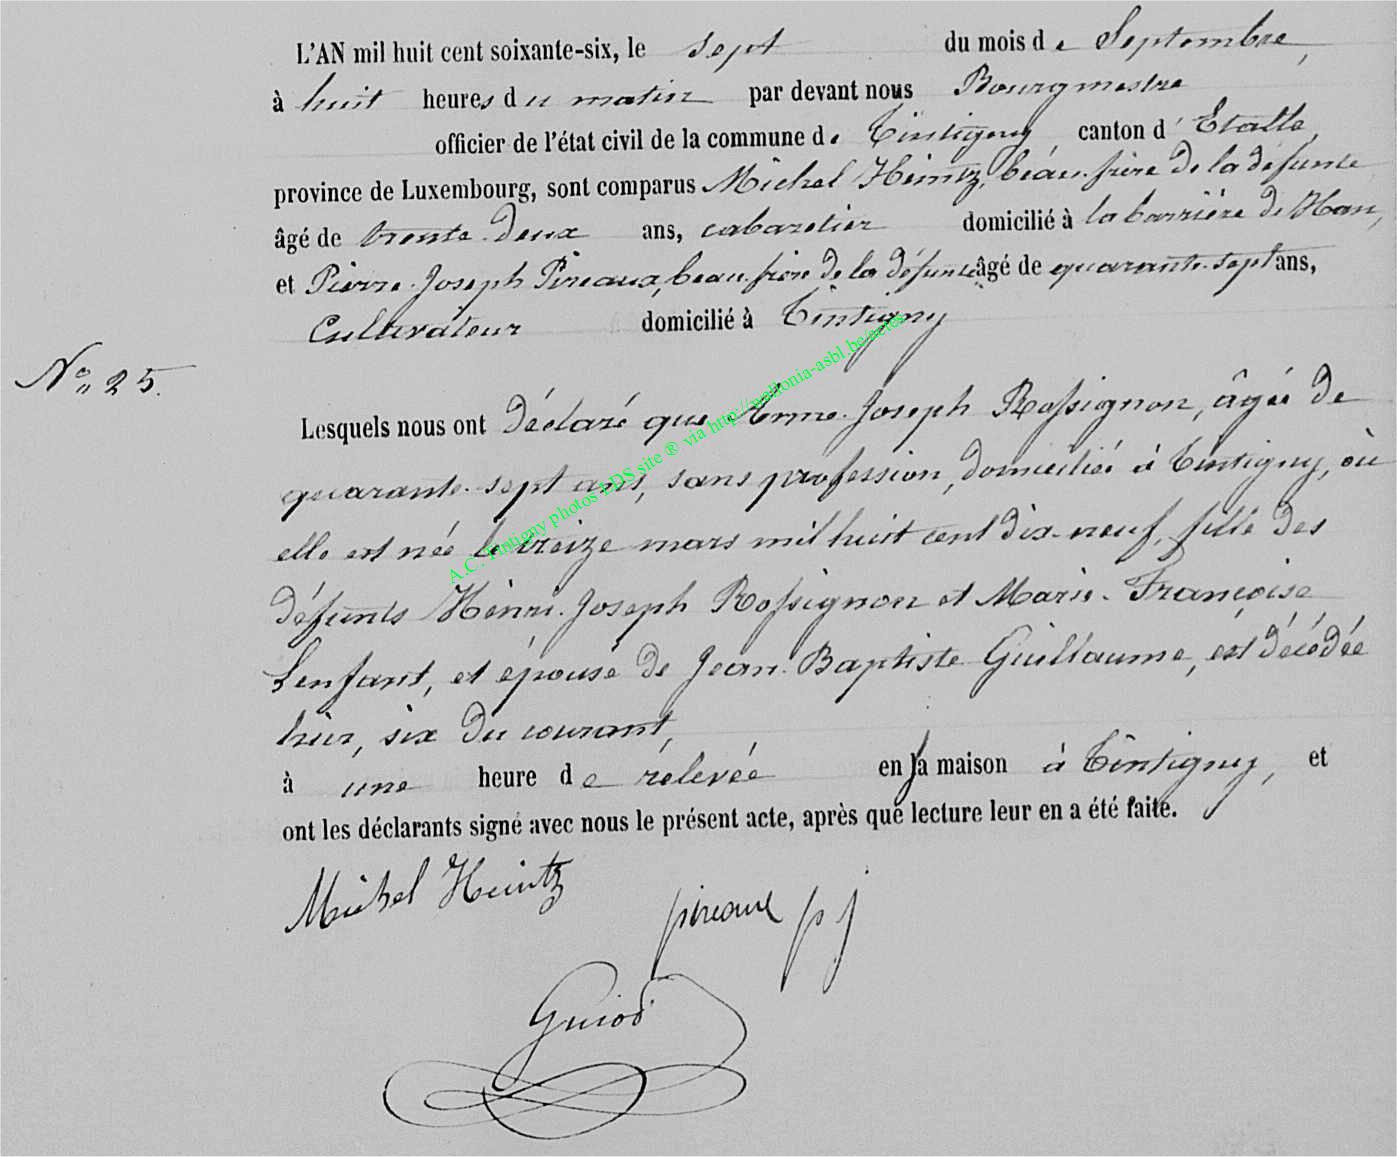 L'AN mil huit cent soixante-six, le sept du mois de Septembre,
à huit heures du matin par devant nous Bourgmestre
officier de l'état civil de la commune de Tintigny canton d'Etalle,
province de Luxembourg, sont comparus Michel Heintz, beau-frère de la défunte
âgé de trente-deux ans, cabaretier domicilié à la barrière de Han,
et Pierre-Joseph Pireaux, beau-frère de la défunte âgé de quarante-sept ans,
Cultivateur domicilié à Tintigny
N° 25.
Lesquels nous ont déclaré que Anne-Joseph Rossignon, âgée de
quarante-sept ans, sans profession, domiciliée à Tintigny, où
elle est née le treize mars mil huit cent dix-neuf, fille des
défunts Henri-Joseph Rossignon et Marie-Françoise
Lenfant, et épouse de Jean-Baptiste Guillaume, est décédée
hier, six du courant,
à une heure de relevée en sa maison à Tintigny, et
ont les déclarants signé avec nous le présent acte, après que lecture leur en a été faite.
Michel Heintz
pireaux p j
Guiod
A.C. Tintigny photos LDS site ® via http://wallonia-asbl.be/actes